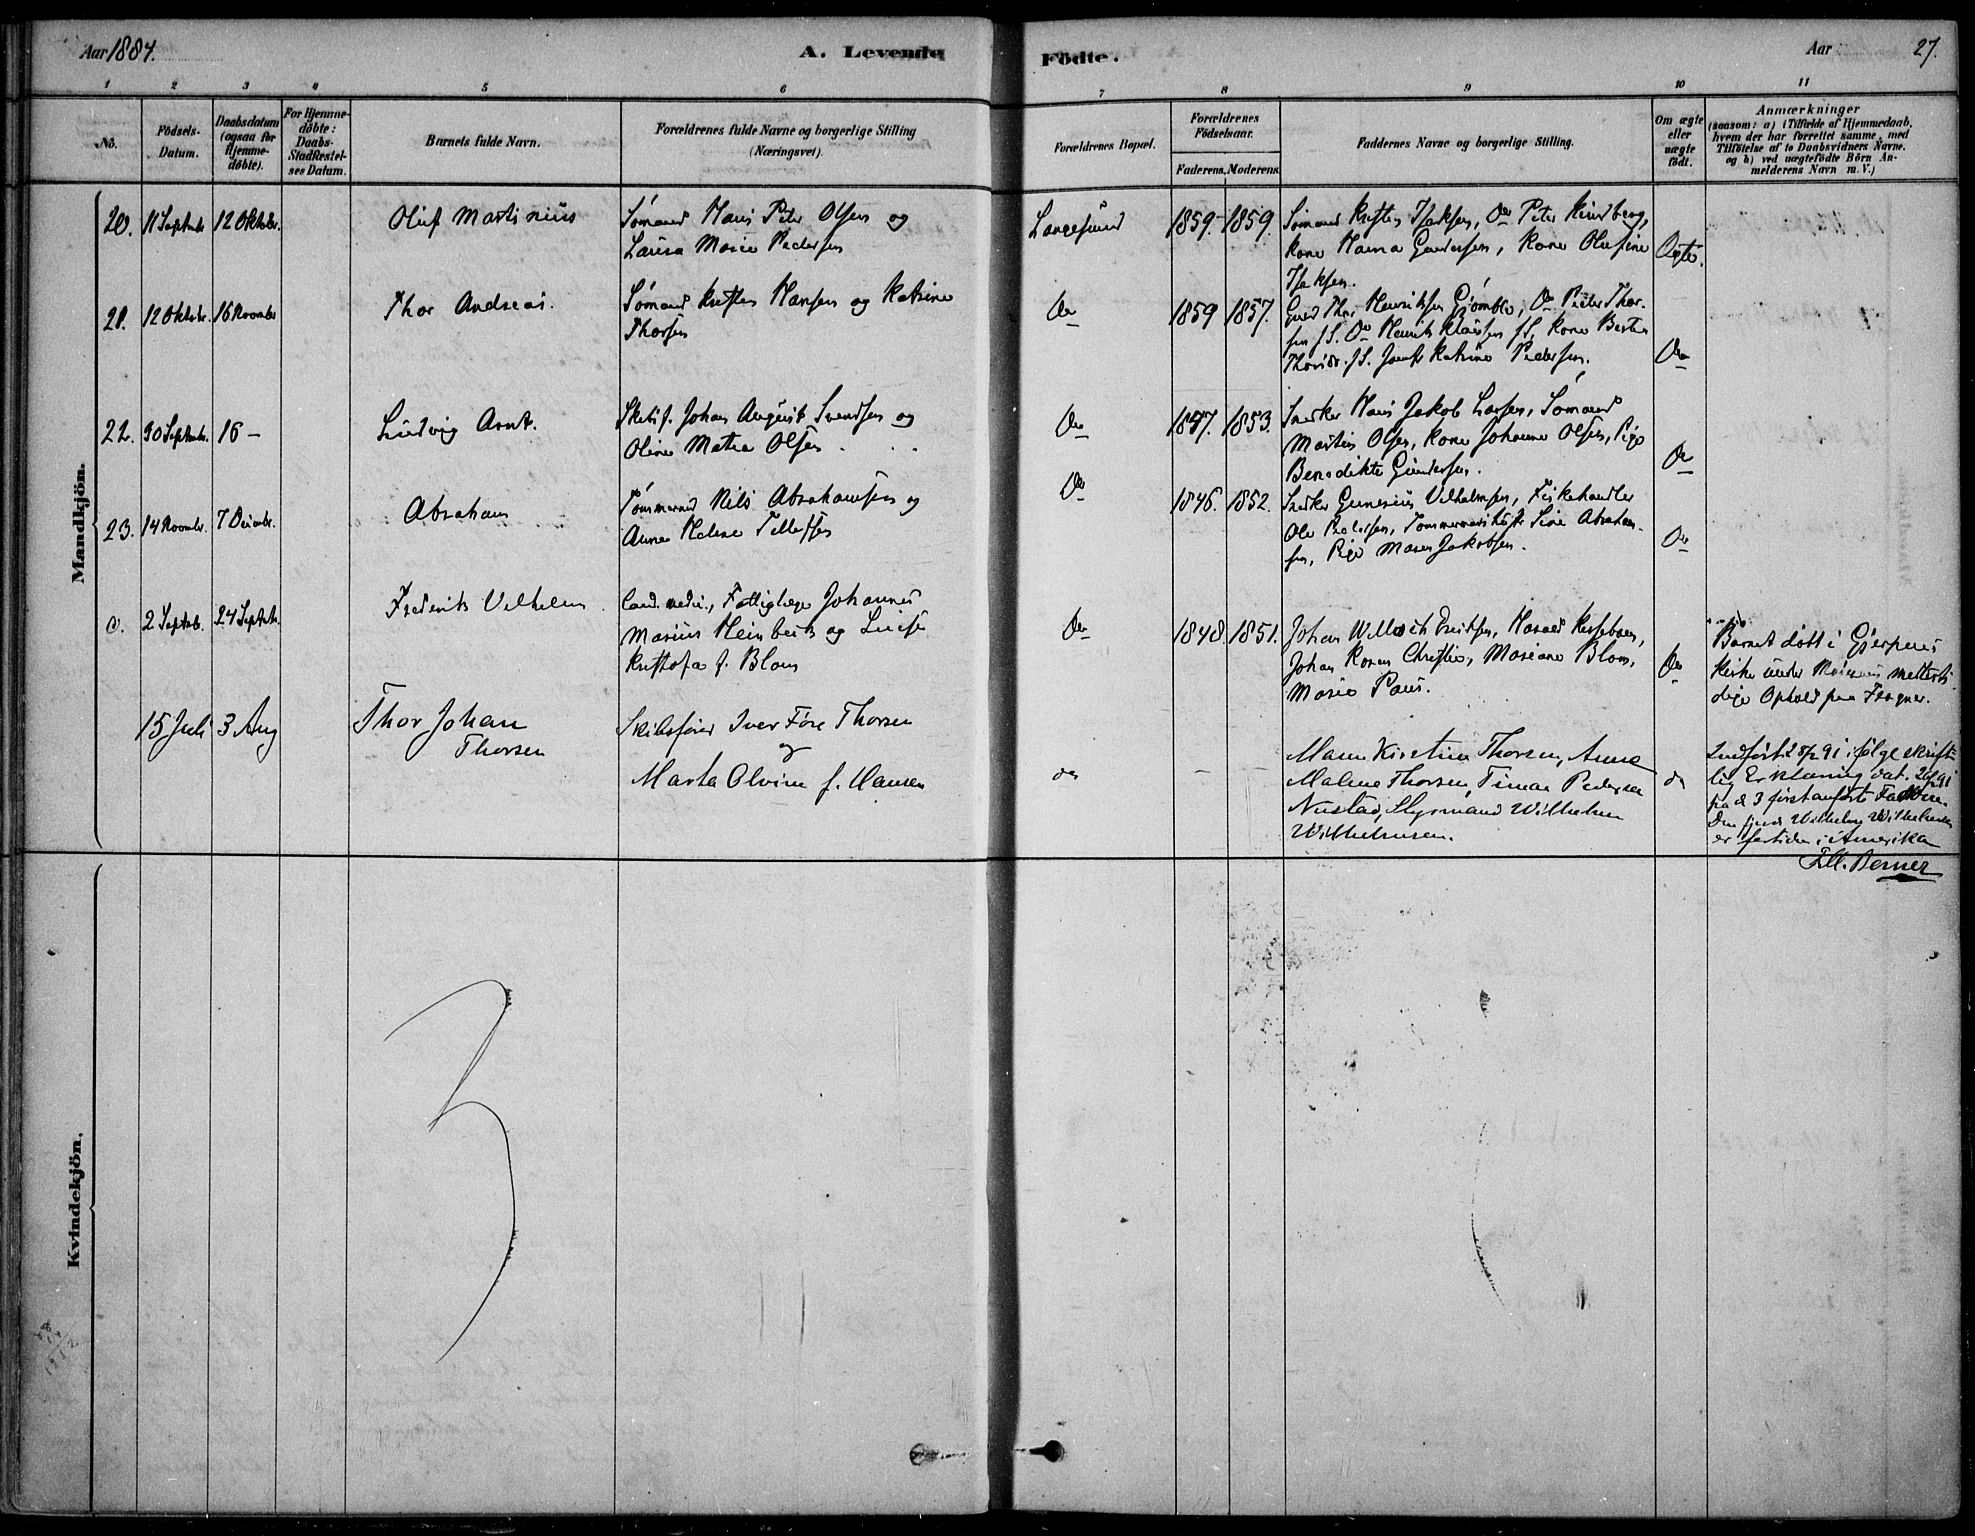 Aar 1884.
A. Levende
Födte.
Aar
27.
1 2 3 4 5 6 7 8 9 10 11
No.
Födsels-
Datum.
Daabsdatum
(ogsaa for
Hjemme-
döbte).
For Hjemme-
döbte:
Daabs-
Stadfæstel-
ses Datum.
Barnets fulde Navn.
Forældrenes fulde Navne og borgerlige Stilling
(Næringsvei).
Forældrenes Bopæl.
Forældrenes
Födselsaar.
Faderens. Moderens.
Faddernes Navne og borgerlige Stilling.
Om ægte
eller
uægte
födt.
Anmærkninger
(saasom: a) i Tilfælde af Hjemmedaab,
hvem der har forrettet samme, med
Tilföielse af to Daabsvidners Navne.
og b) ved uægtefödte Börn An-
melderens Navn m. V.)
Mandkjön.
20. 11 Septbr. 12 Oktober.
Oluf Martinius
Sømand Hans Peter Olsen og
Laura Marie Pedersen
Langesund
1859. 1859.
Sømand Kristen Isaksen, Do Peter
Kone Hanna Gundersen, Kone Olufine
Isaksen.
Ægte.
21. 12 Oktbr. 16 Novembr
Thor Andreas.
Sømand Kristen Hansen og Katrine
Thorsen
Do
1859 1857.
Henriksen Do Peder Thor-
sen f.S. Do Henrik f.S. Kone
f.S. Katrine Pedersen.
Do
22. 30 Septembr. 16 –
Ludvig Arnt.
Johan August Svendsen og
Oline Mathea Olsen
Do
1847. 1853.
Snedker Hans Jakob Larsen, Sømand
Martin Olsen, Kone Johanne Olsen, Pige
Benedikte Gundersen.
Do
23. 14 Novembr. 7 Decembr.
Abraham
Tømmermand Nils Abrahamsen og
Anne Helene Tellefsen
Do
1846. 1852.
Snedker Gunerius Vilhelmsen, Fiskehandler
Ole Pedersen, Tømmermands Sine Abraham-
sen, Pige Maren Jakobsen.
Do
2 Septbr. 24 Septbr.
Frederik Vilhelm
Cand. medic., Fattiglæge Johannes
Marius Heinbeck og Luise
Kristofa f. Blom
Do
1848. 1851.
Johan Eriksen, Harald
Johan Christie, Mariane Blom,
Marie Paus.
Do
Barnet døbt i Gjerpens
Kirke under Moderens
dige Ophold paa Frogner.
15 Juli 3 Aug
Thor Johan
Thorsen
Skibsfører Iver Thorsen
og
Marta Olvine f. Hansen
do
– –
Maren Kirstine Thorsen, Anne
Malene Thorsen, Pedersen
Nustad, Styrmand Wilhelm
Wilhelmsen.
do
Indført 91 ifølge skrift-
lig Erklæring dat. 91
fra de 3 førstanførte Faddere.
Den fjerde Wilhelm Wilhelmsen
er fortiden i Amerika
Berner
Kvindekjön.